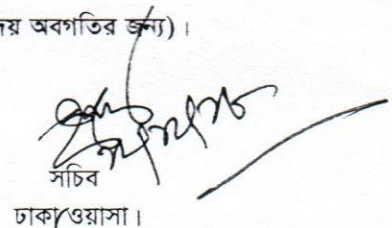 অবগতির জন্য)।
সচিব
ঢাকা ওয়াসা।